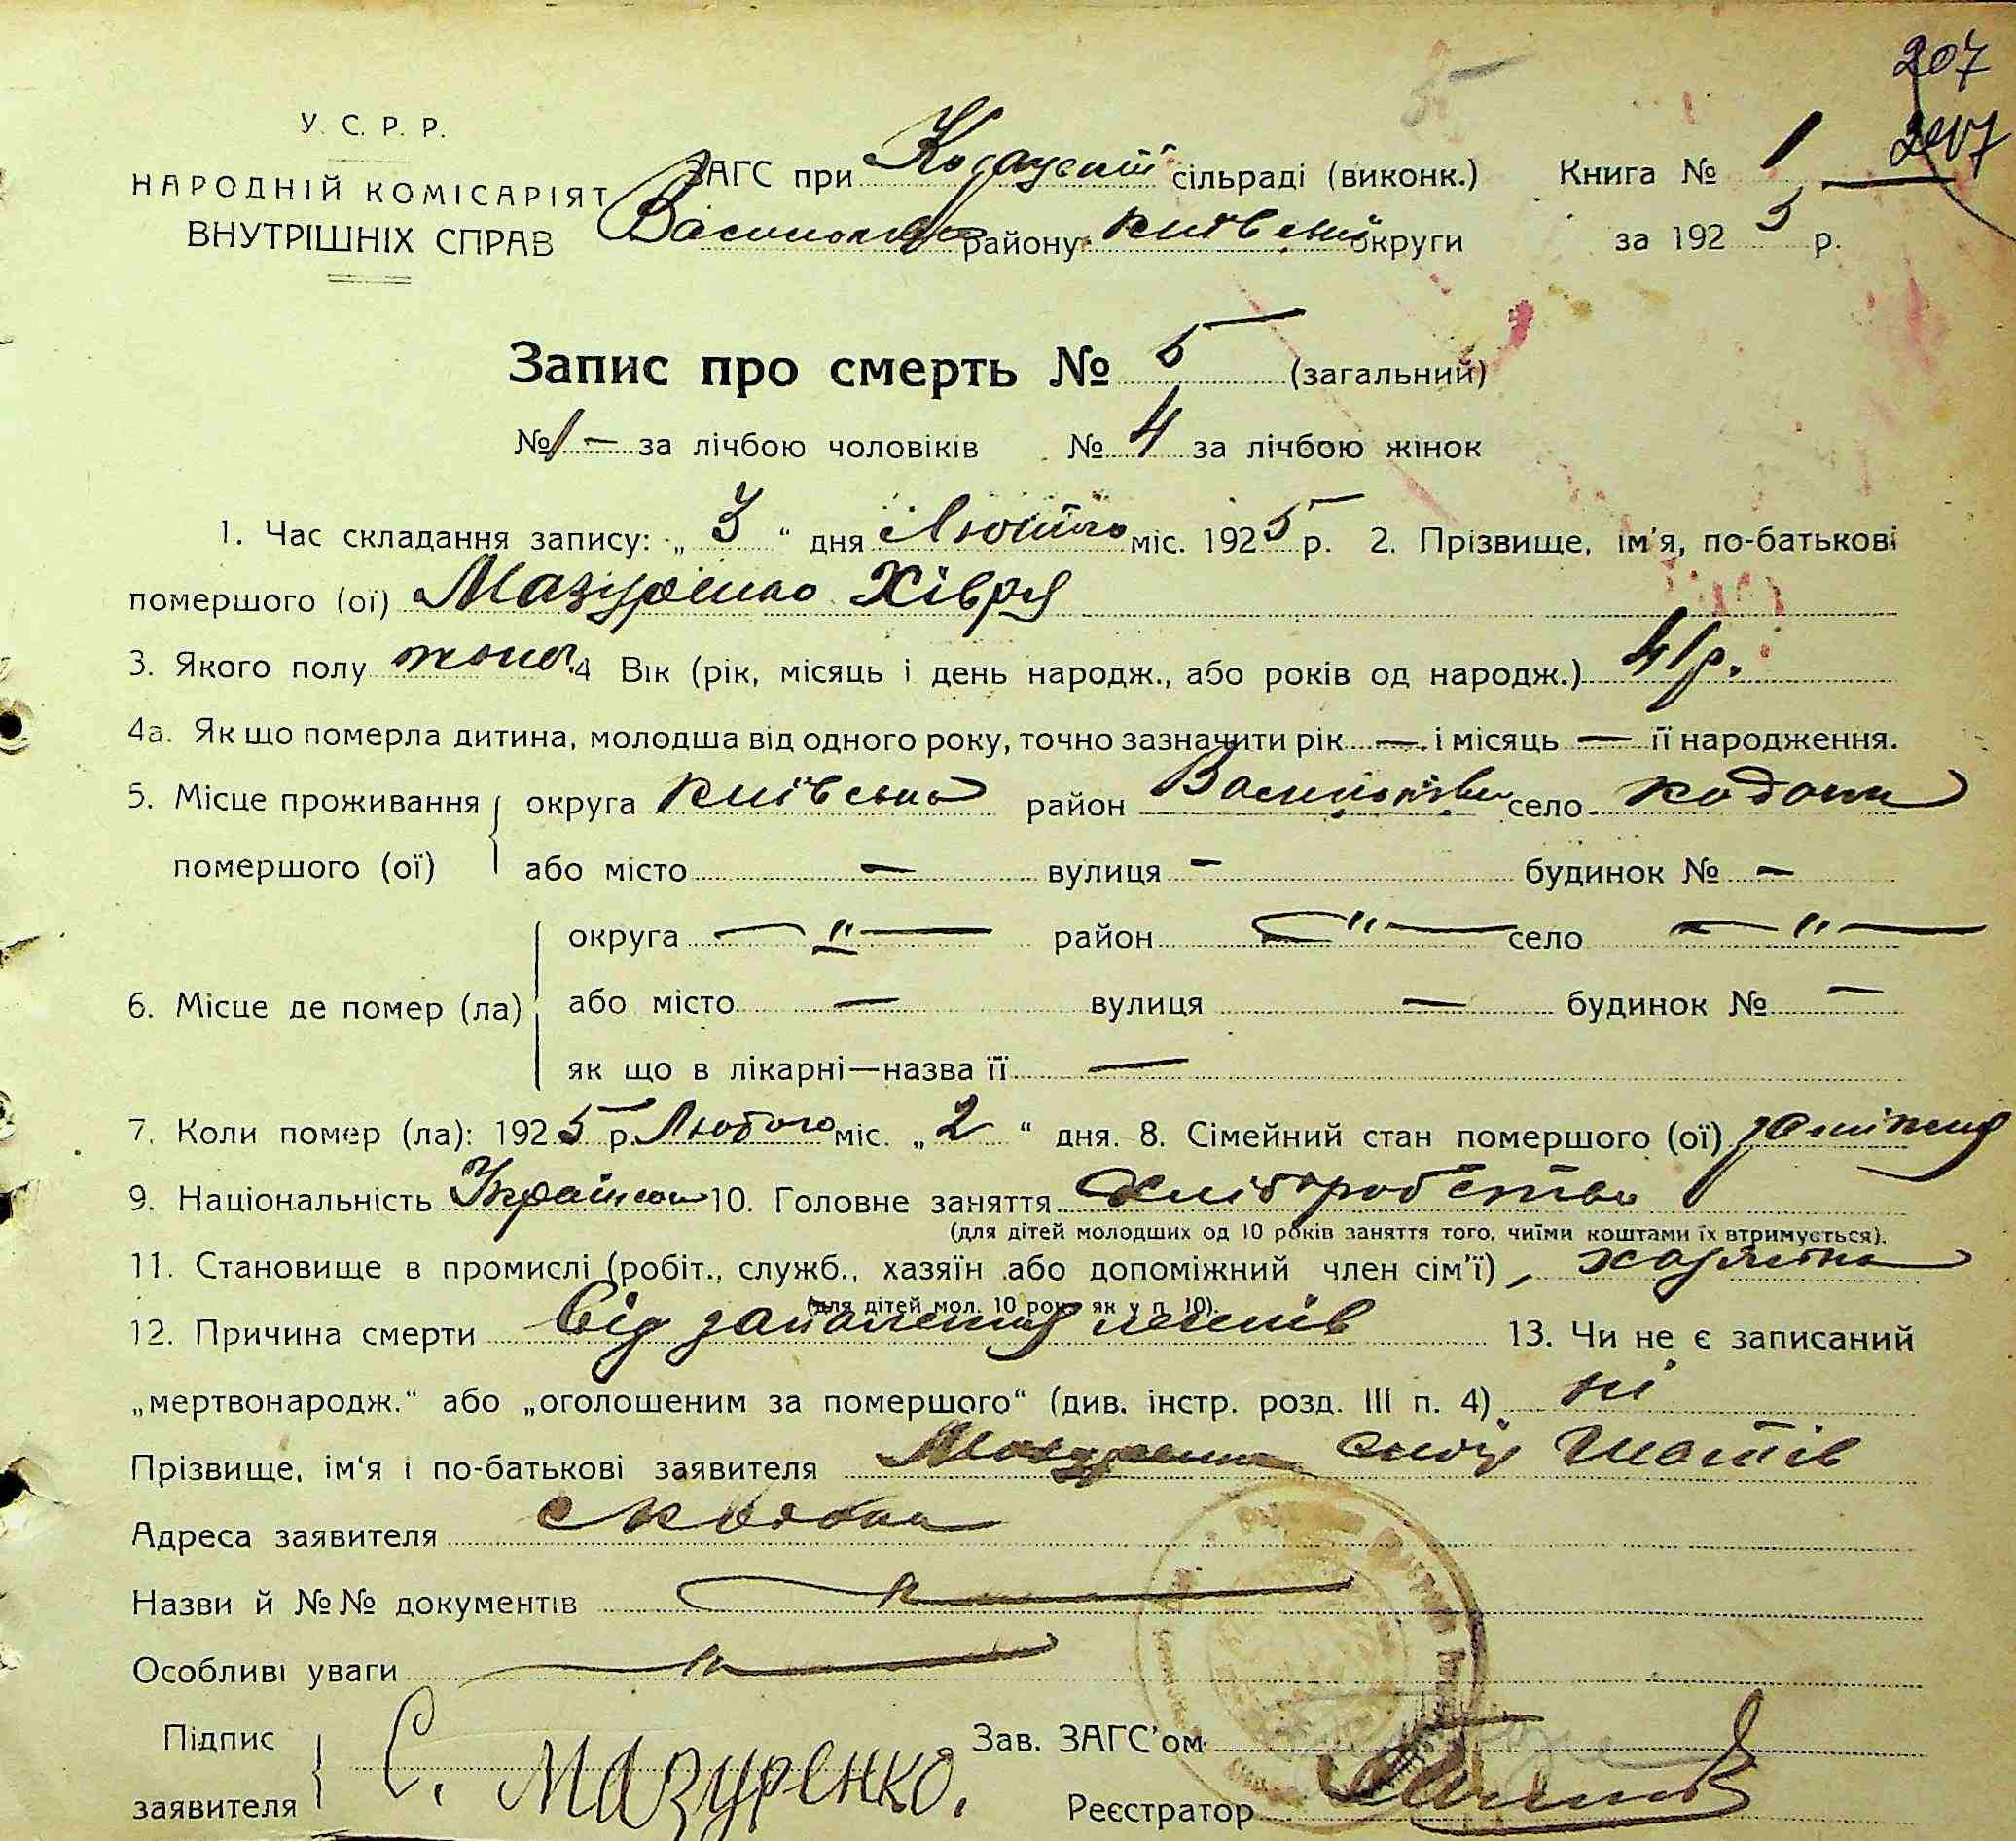 207
У. С. Р. Р.
НАРОДНІЙ КОМІСАРІЯТ
ВНУТРІШНІХ СПРАВ
ЗАГС при сільраді (виконк.) Книга № 1
району округи за 1925 р.
Запис про смерть № 5 (загальний)
№ — за лічбою чоловіків № 4 за лічбою жінок
1. Час складання запису: „ 3 “ дня Лютого міс. 1925 р. 2. Прізвище, ім'я, по-батькові
помершого (ої) Мазуренко Хівря
3. Якого полу жіноч. 4 Вік (рік, місяць і день народж., або років од народж.) 41 р.
4а. Як що померла дитина, молодша від одного року, точно зазначити рік — і місяць — її народження.
5. Місце проживання округа Київська район село Кодаки
помершого (ої) або місто — вулиця — будинок № —
округа — " — район — " — село — " —
6. Місце де помер (ла) або місто — вулиця — будинок № —
як що в лікарні—назва її —
7. Коли помер (ла): 1925 р. Лютого міс. „ 2 “ дня. 8. Сімейний стан помершого (ої) заміжня
9. Національність Українка 10. Головне заняття Хліборобство
(для дітей молодших од 10 років заняття того, чиїми коштами їх втримується).
11. Становище в промислі (робіт., служб., хазяїн або допоміжний член сім'ї), хазяйка
(для дітей мол. 10 рок. як у п. 10).
12. Причина смерти Від запалення легенів 13. Чи не є записаний
„мертвонародж.“ або „оголошеним за помершого“ (див. інстр. розд. III п. 4) ні
Прізвище, ім'я і по-батькові заявителя Мазуренко
Адреса заявителя с Кодаки
Назви й №№ документів — " —
Особливі уваги — " —
Підпис Зав. ЗАГС'ом
заявителя С. Мазуренко. Реєстратор